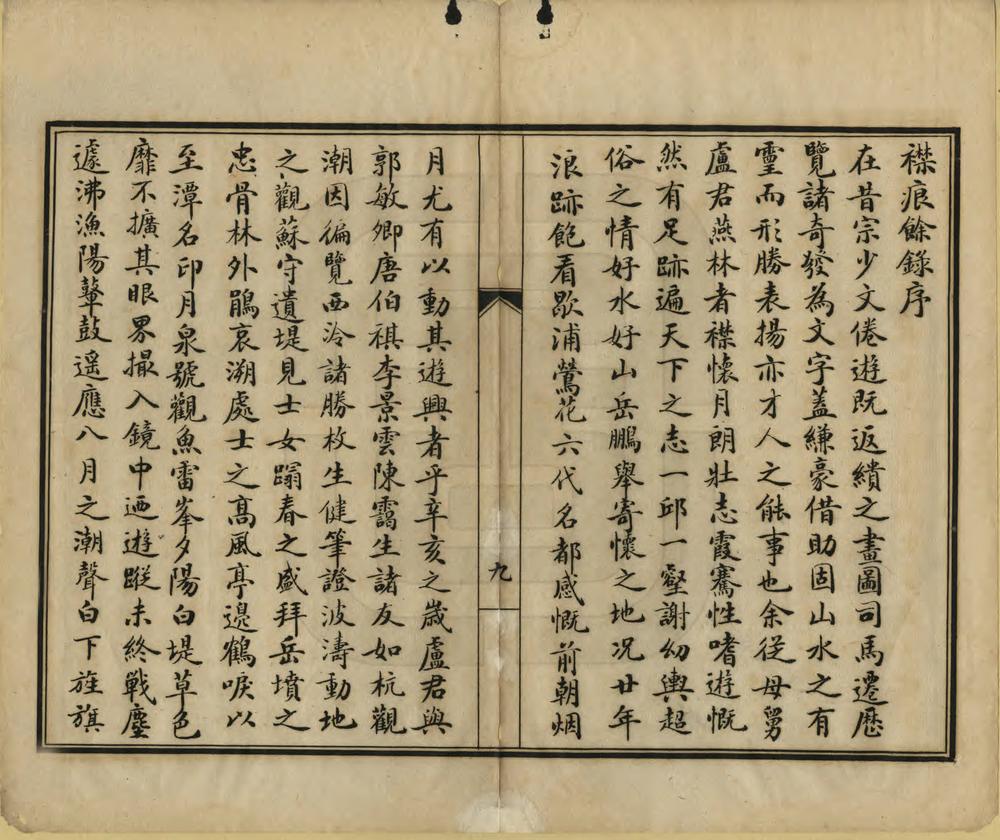 襟痕餘錄序
在昔宗少文倦遊既返繢之畫圖司馬遷歷
覽諸奇發為文字蓋縑豪借助固山水之有
靈而形勝表揚亦才人之能事也余從母舅
盧君燕林者襟懷月朗壯志霞騫性嗜遊慨
然有足跡遍天下之志一邱一壑謝幼輿超
俗之情好水好山岳鵬舉寄懷之地況廿年
浪跡飽看歇浦鶯花六代名都感慨前朝烟
九
月尤有以動其遊興者乎辛亥之歲盧君與
郭敏卿唐伯祺李景雲陳靄生諸友如杭觀
潮因徧覽西泠諸勝枚生健筆證波濤動地
之觀蘇守遺堤見士女蹋春之盛拜岳墳之
忠骨林外鵑哀溯處士之高風亭邊鶴唳以
至潭名印月泉號觀魚雷峯夕陽白堤草色
靡不擴其眼界撮入鏡中迺遊蹤未終戰塵
遽沸漁陽鼙鼓遥應八月之潮聲白下旌旗